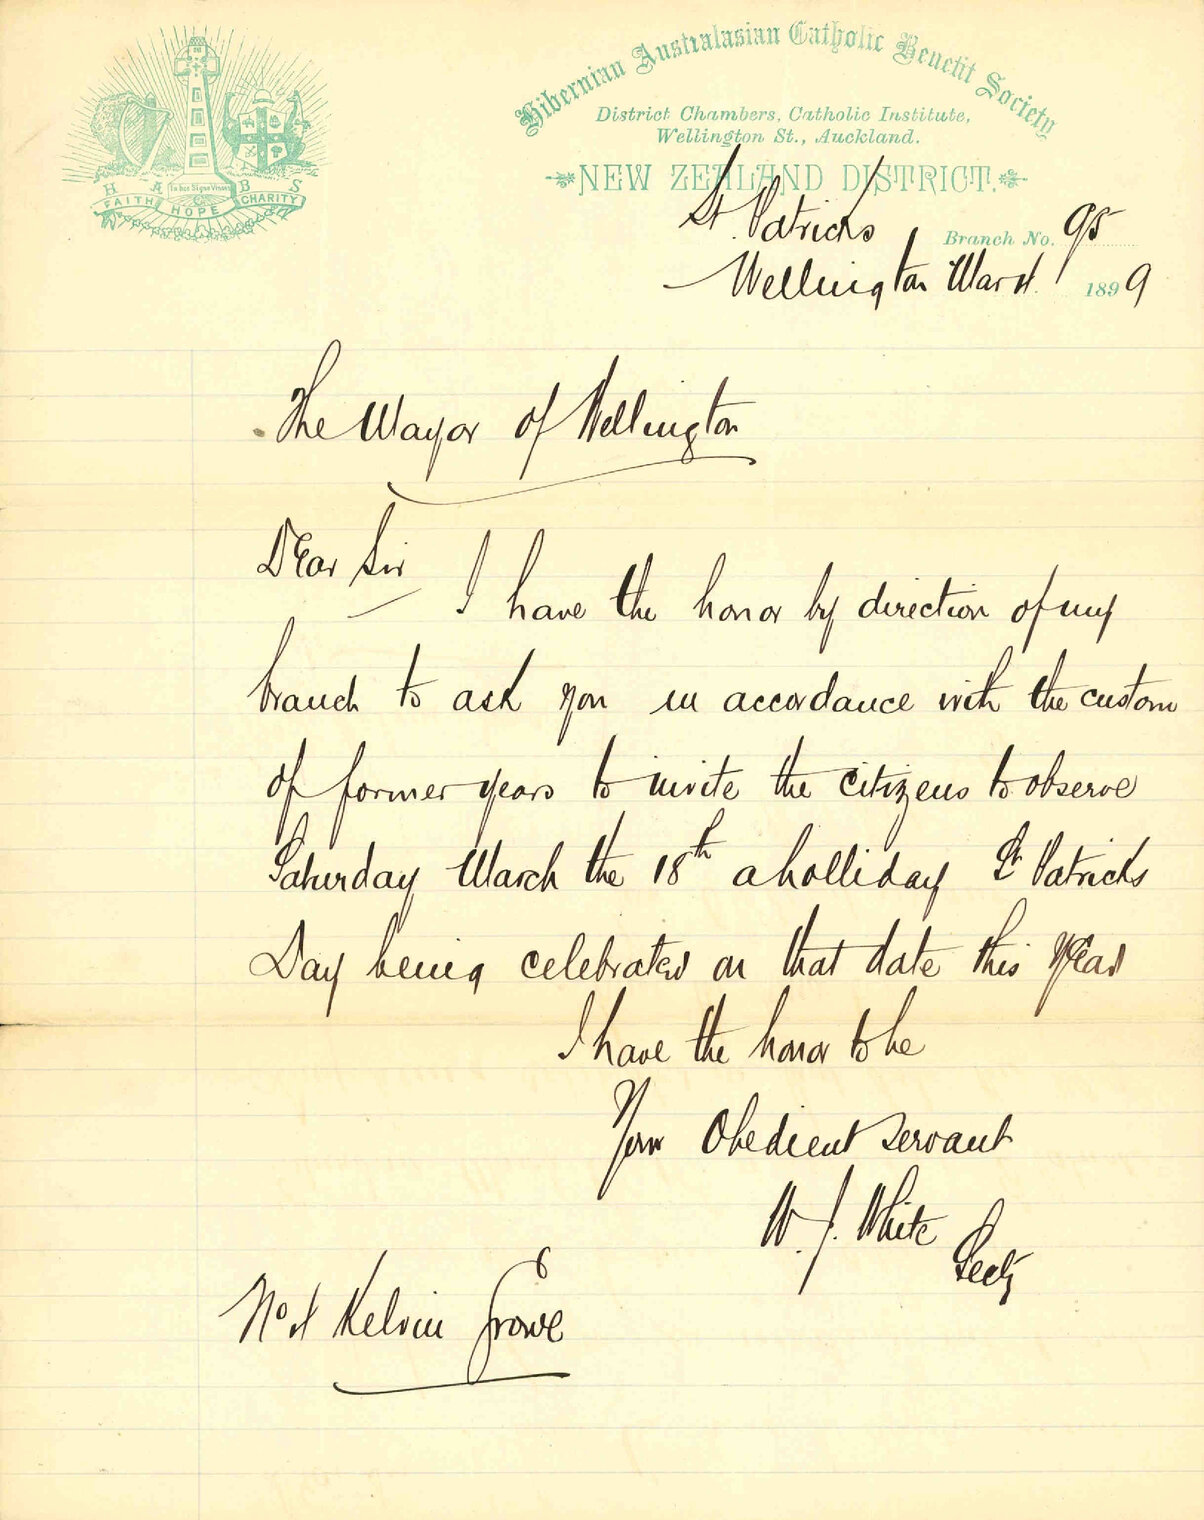 Hibernian Australasian Catholic Benefit Society
District Chambers, Catholic Institute,
Wellington St., Auckland.
NEW ZEALAND DISTRICT.
H A B S
In hoc Signo Vinces
FAITH HOPE CHARITY
St. Patricks Branch No. 95
Wellington 1899
The Mayor of Wellington
Dear Sir
I have the honor by direction of my
branch to ask you in accordance with the custom
of former years to invite the citizens to observe
Saturday March the 18th a holliday St Patricks
Day being celebrated on that date this Year
I have the honor to be
Your Obedient servant
W. J. White
Secty
No 4 Kelvin Grove